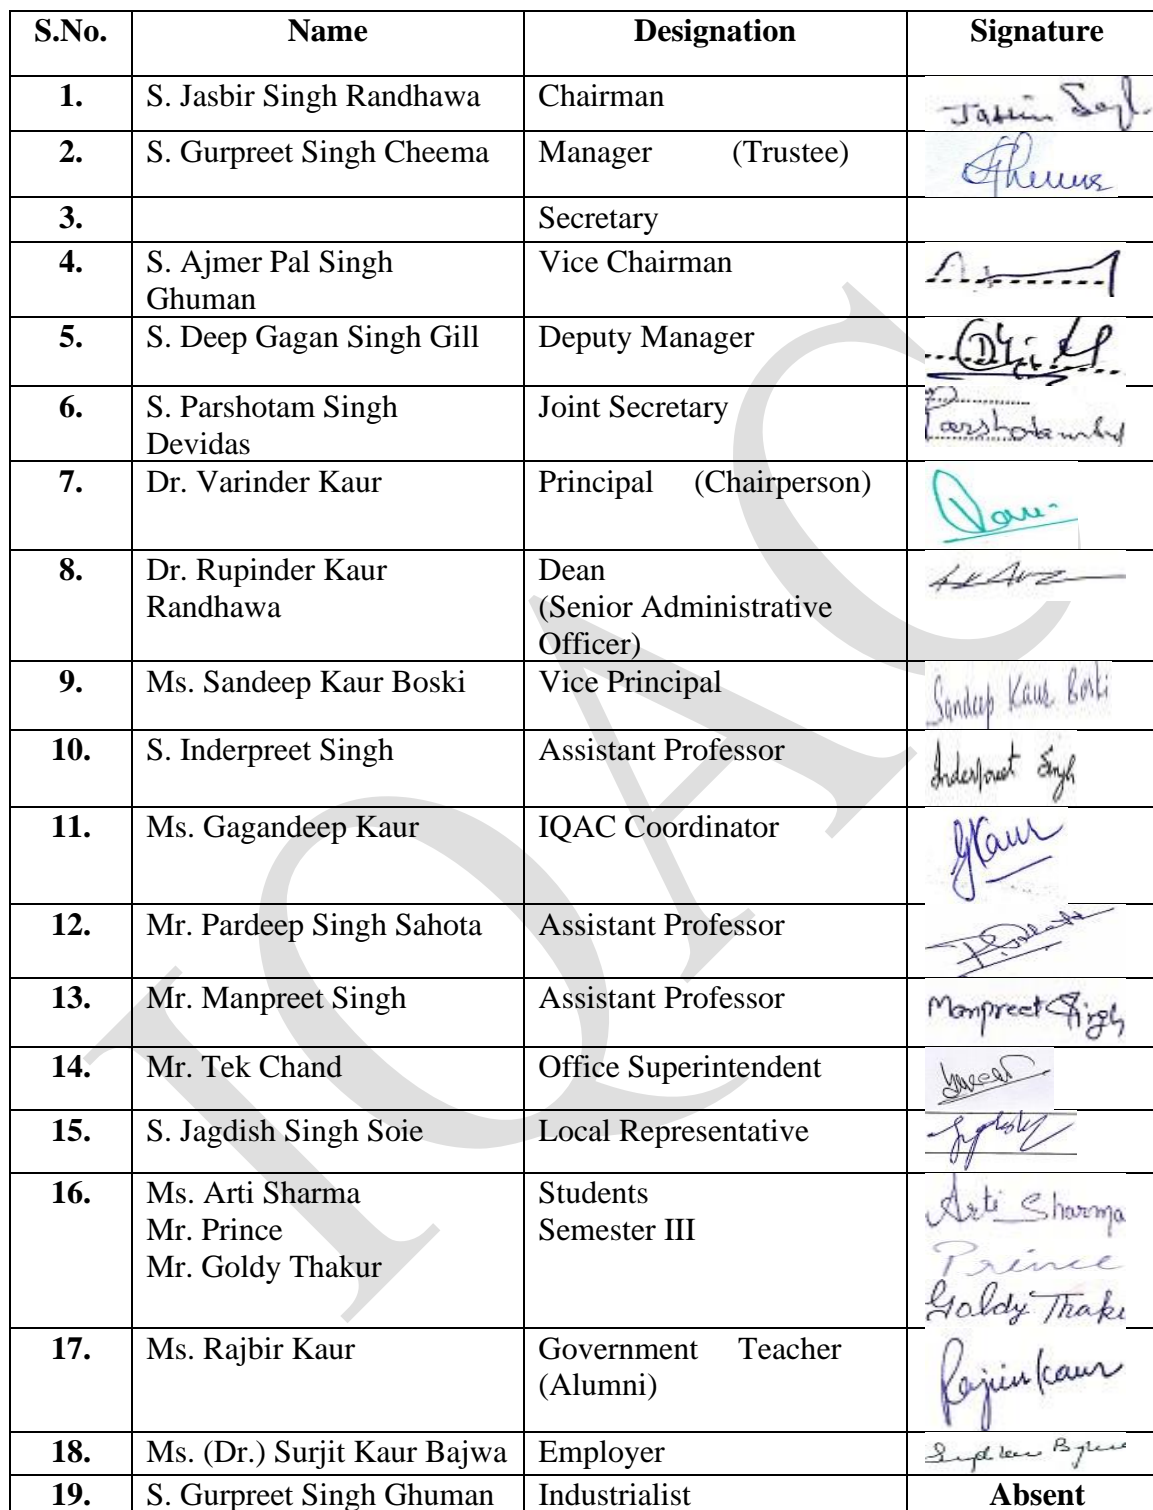 S.No. Name Designation Signature
1. S. Jasbir Singh Randhawa Chairman
2. S. Gurpreet Singh Cheema Manager (Trustee)
3. Secretary
4. S. Ajmer Pal Singh Vice Chairman
Ghuman
5. S. Deep Gagan Singh Gill Deputy Manager
6. S. Parshotam Singh Joint Secretary
Devidas
7. Dr. Varinder Kaur Principal (Chairperson)
8. Dr. Rupinder Kaur Dean
Randhawa (Senior Administrative
Officer)
9. Ms. Sandeep Kaur Boski Vice Principal Sandeep Kaur Boski
10. S. Inderpreet Singh Assistant Professor Inderpreet Singh
11. Ms. Gagandeep Kaur IQAC Coordinator GKaur
12. Mr. Pardeep Singh Sahota Assistant Professor
13. Mr. Manpreet Singh Assistant Professor Manpreet Singh
14. Mr. Tek Chand Office Superintendent
15. S. Jagdish Singh Soie Local Representative
16. Ms. Arti Sharma Students Arti Sharma
Mr. Prince Semester III Prince
Mr. Goldy Thakur Goldy Thaku
17. Ms. Rajbir Kaur Government Teacher Rajbir Kaur
(Alumni)
18. Ms. (Dr.) Surjit Kaur Bajwa Employer
19. S. Gurpreet Singh Ghuman Industrialist Absent
IQAC